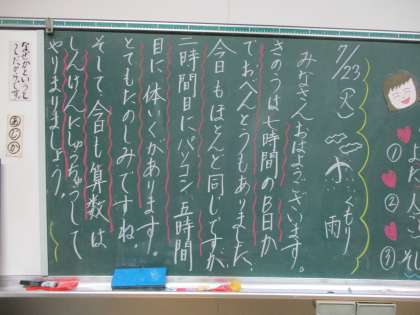 ①
②
③
7/23(火)
くもり
雨
みなさんおはようございます。
きのうは七時間のB日か
でおべんとうもありました。
今日もほとんど同じですが、
二時間目にパソコン五時間
目に体いくがあります。
とてもたのしみですね。
そして、今日も算数は
しんけんにしゅうちゅうして
やりまりましょう。
なぜかというと